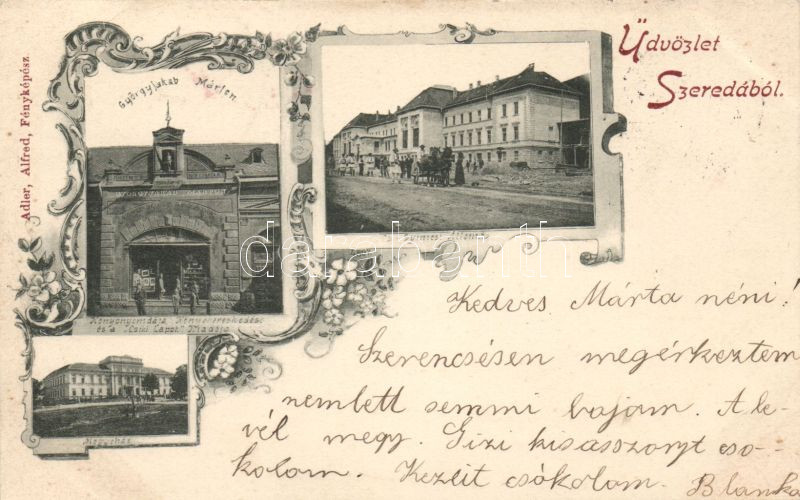 Üdvözlet
Szeredából.
Adler, Alfred, Fényképész
Györgyjakab Márton
Könyvnyomdája Könyvkereskedése
és a "Csiki Lapok" kiadója
Gyimesi Állomás
Megyeház
darabanth
Kedves Márta néni!
Szerencsésen megérkeztem
nemlett semmi bajom. A le-
vél megy. Gizi kisasszonyt cso-
kolom. Kezeit csókolom.
Blanka